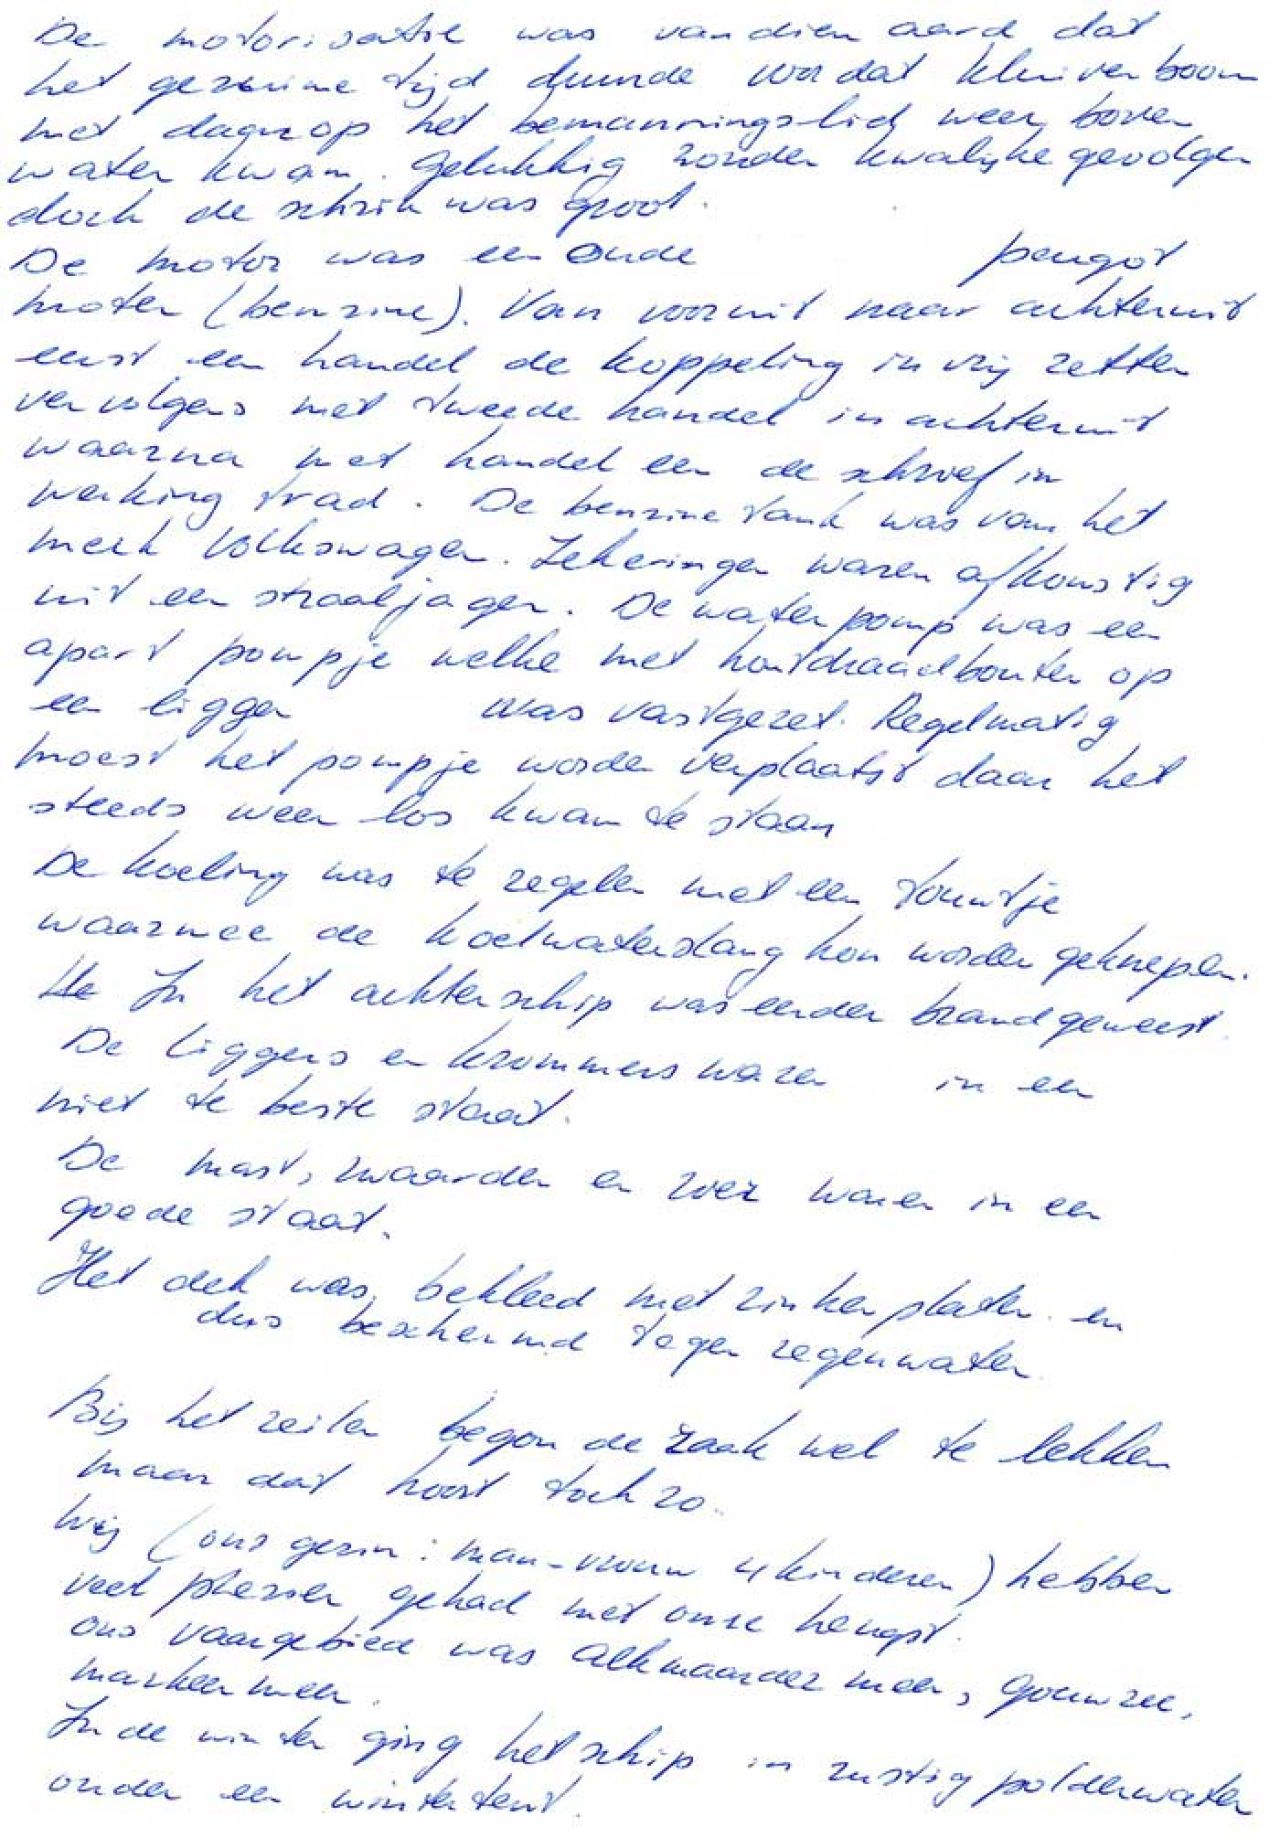 De motorisatie was van dien aard dat
het geruime tijd duurde voordat kluiverboom
met daarop het bemanningslid weer boven
water kwam. Gelukkig zonder kwalijke gevolgen
doch de schrik was groot.
De motor was een oude peugot
moter (benzine). Van vooruit naar achteruit
eerst een handel de koppeling in vrij zetten
vervolgens met tweede handel in achteruit
waarna met handel een de schroef in
werking trad. De benzine tank was van het
merk Volkswagen. Zekeringen waren afkomstig
uit een straaljager. De waterpomp was een
apart pompje welke met houtdraadbouten op
een ligger was vastgezet. Regelmatig
moest het pompje worden verplaatst daar het
steeds weer los kwam te staan
De koeling was te regelen met een touwtje
waarmee de koelwaterslang kon worden geknepen.
In het achterschip was eerder brand geweest.
De liggers en krommers waren in een
niet te beste staat.
De mast, zwaarden en roer waren in een
goede staat.
Het dek was bekleed met zinken platen en
dus beschermd tegen regenwater.
Bij het zeilen begon de zaak wel te lekken
maar dat hoort toch zo.
Wij (ons gezin: man-vrouw 4 kinderen) hebben
veel plezier gehad met onze hengst.
Ons vaargebied was Alkmaarder meer, Gouwzee,
markermeer.
In de winter ging het schip in rustig polderwater
onder een wintertent.